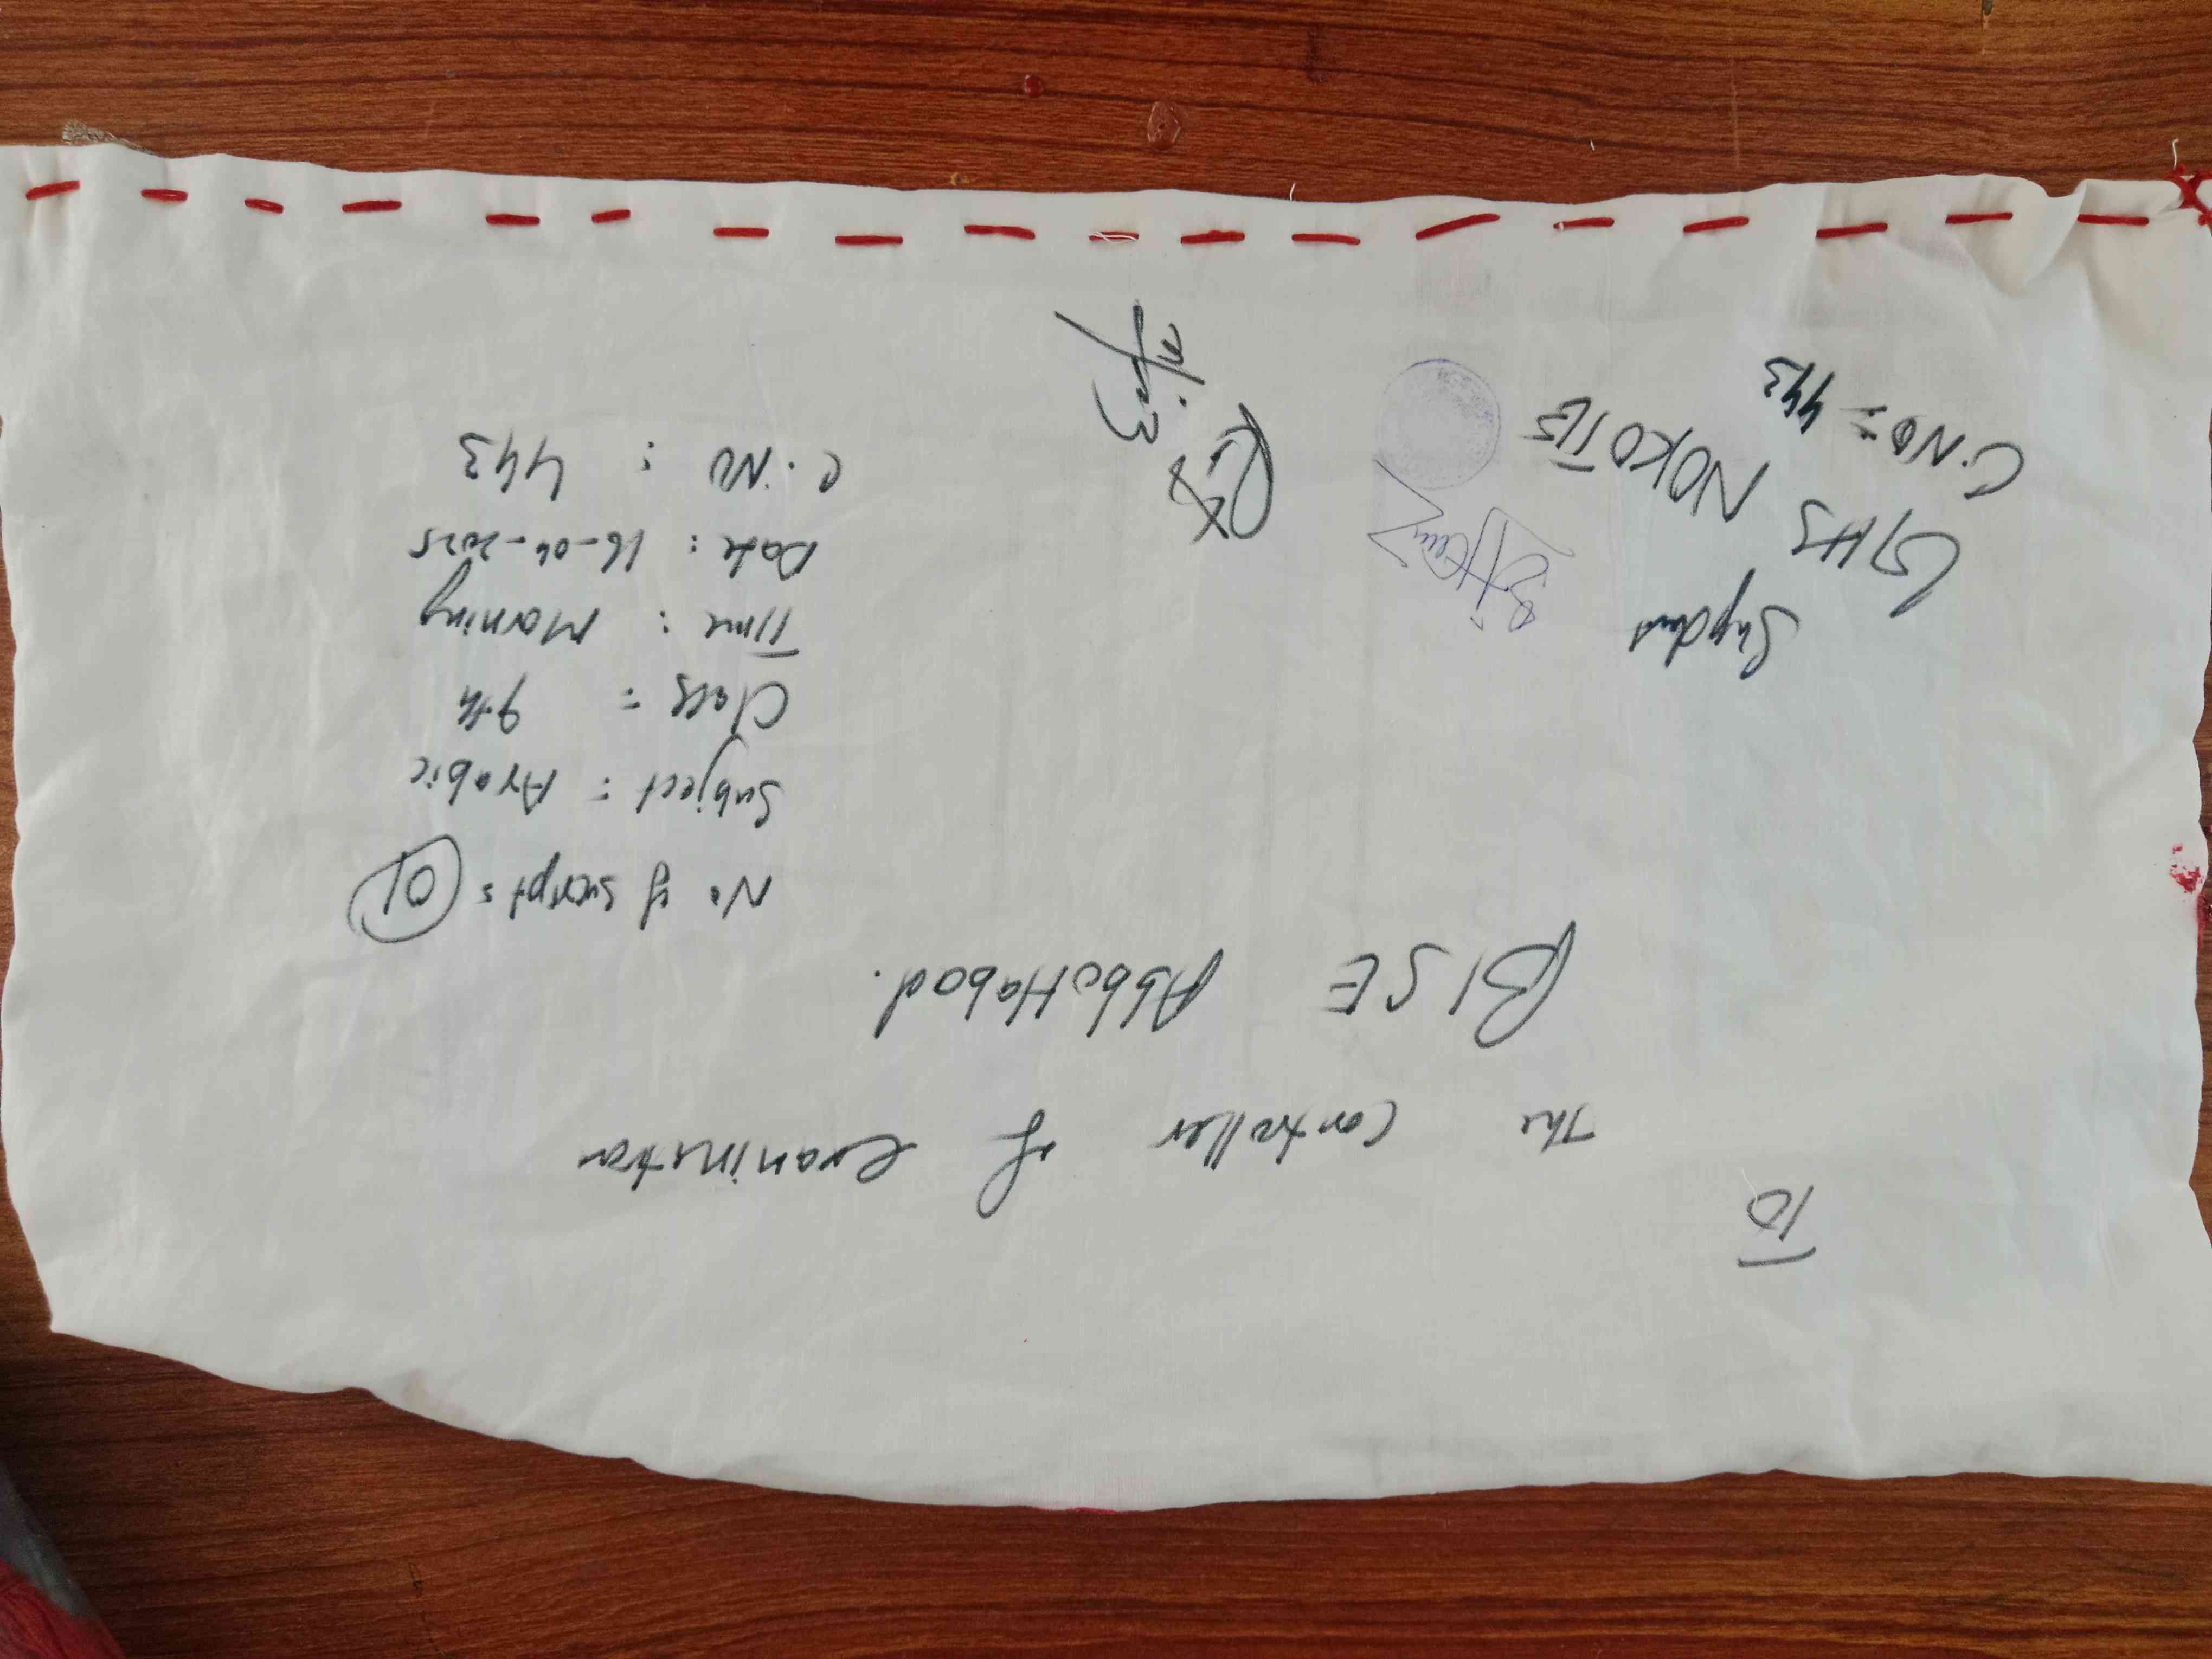 To
The Controller of Examination
BISE Abbottabad.
No of sucript = 01
Subject = Arabic
Class = 9th
Time : Morning
Date : 16-04-2025
C.NO : 443
Supdnt
GHS NOKOTE
C.NO = 443